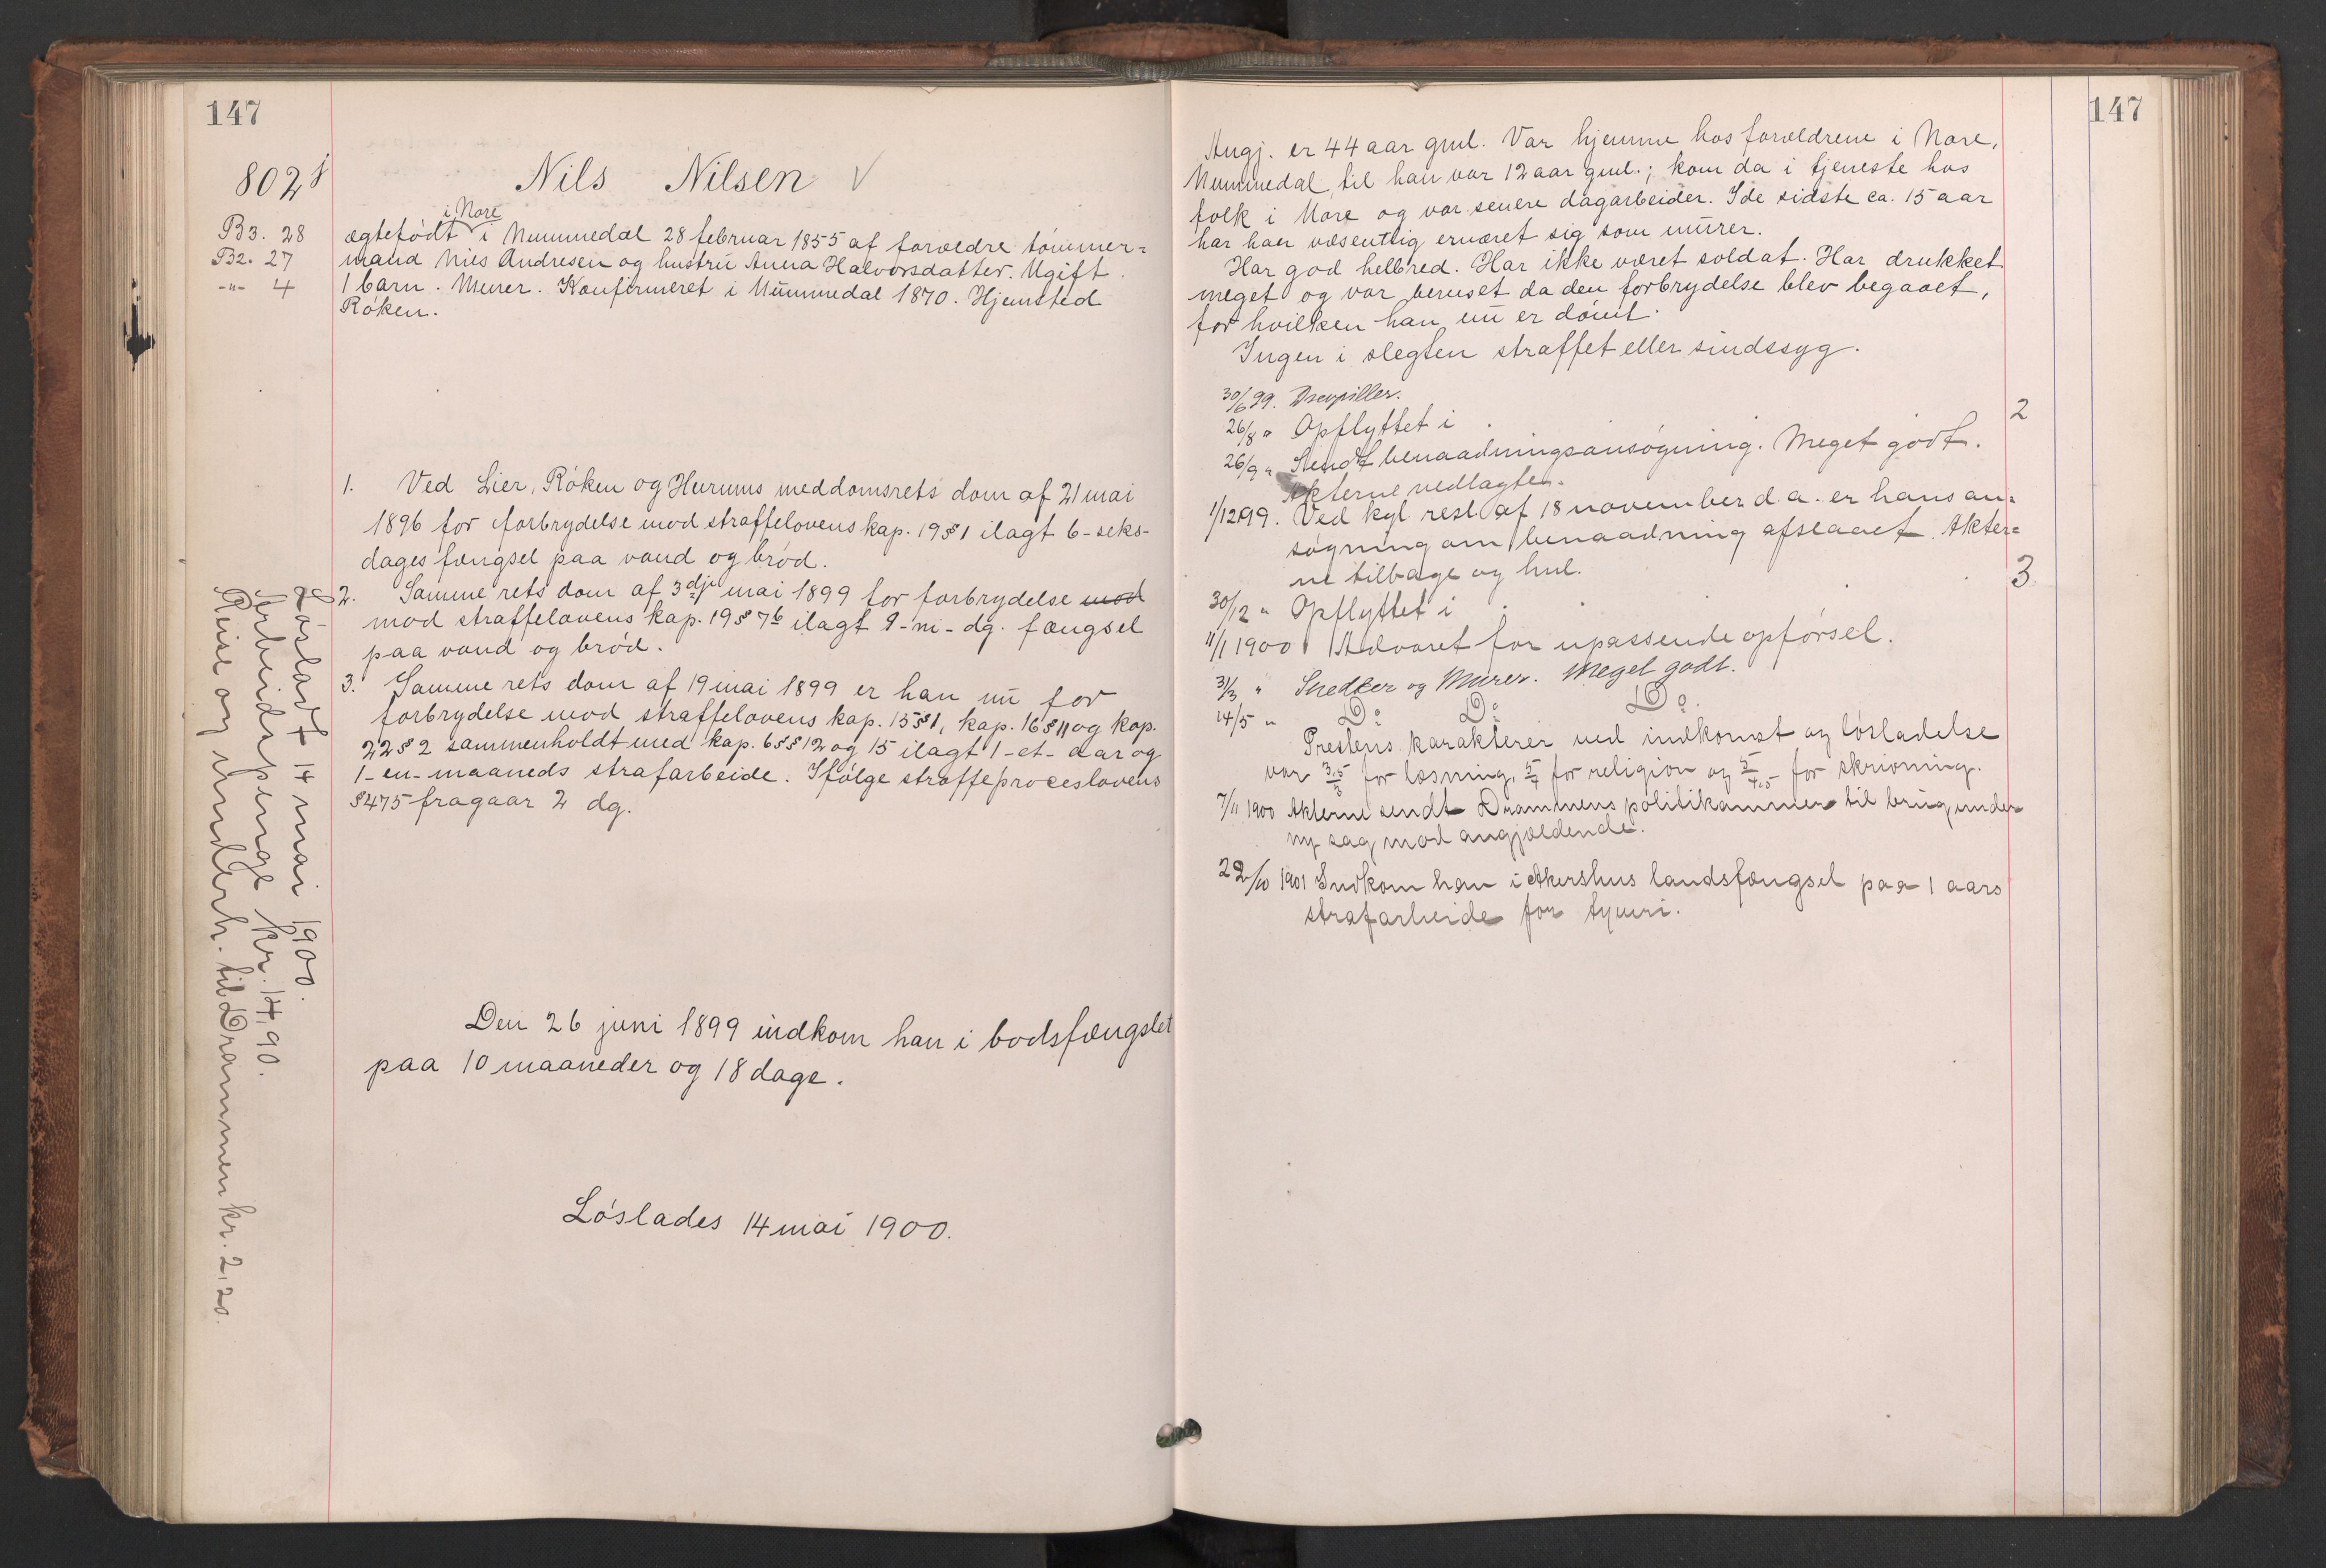 147
802
Nils Nilsen √
B3. 28
B2. 27
-"- 4
i Nore
ægtefødt i Nummedal 28 februar 1855 af forældre tømmer=
mand Nils Andresen og hustru Anna Halvorsdatter. Ugift.
1 barn. Murer. Konfirmeret i Nummedal 1870. Hjemsted
Røken.
1. Ved Lier, Røken og Hurums meddomsrets dom af 21 mai
1896 for forbrydelse mod straffelovens kap. 19 § 1 ilagt 6-seks-
dages fængsel paa vand og brød.
2. Samme rets dom af 3dje mai 1899 for forbrydelse mod
mod straffelovens kap. 19 § 7b ilagt 9-ni-dg. fængsel
paa vand og brød.
3. Samme rets dom af 19 mai 1899 er han nu for
forbrydelse mod straffelovens kap. 15 § 1, kap. 16 § 11 og kap.
22 § 2 sammenholdt med kap. 6 §§ 12 og 15 ilagt 1-et-aar og
1-en-maaneds strafarbeide. Ifølge straffeproceslovens
§ 475 fragaar 2 dg.
Den 26 juni 1899 indkom han i bodsfængslet
paa 10 maaneder og 18 dage.
Løslades 14 mai 1900.
Løsladt 14 mai 1900.
Arbeidspenge kr. 14,90.
Reise og underh. til Drammen kr. 2,20.
147
Angj. er 44 aar gml. Var hjemme hos forældrene i Nore,
Nummedal, til han var 12 aar gml.; kom da i tjeneste hos
folk i Nore og var senere dagarbeider. I de sidste ca. 15 aar
har han væsentlig ernæret sig som murer.
Har god helbred. Har ikke været soldat. Har drukket
meget og var beruset da den forbrydelse blev begaaet,
for hvilken han nu er dømt.
Ingen i slegten straffet eller sindssyg.
30/6 99. Drevpiller.
26/8 " Opflyttet i . 2
26/9 " Sendt benaadningsansøgning. Meget godt.
Akterne vedlagtes.
1/12 99. Ved kgl. resl. af 18 november d.a. er hans an=
søgning om benaadning afslaaet. Akter=
ne tilbage og hul.
30/12 " Opflyttet i . . . 3
11/1 1900 Advaret for upassende opførsel.
31/3 " Snedker og Murer. Meget godt.
14/5 " Do Do Do.
Prestens karakterer ved indkomst og løsladelse
var 3,5/3 for læsning, 5/4 for religion og 5/4,5 for skrivning.
7/11 1900 Akterne sendt Drammens politikammer til brug under
ny sag mod angjældende.
22/10 1901 Indkom han i Akershus landsfængsel paa 1 aars
strafarbeide for tyveri.